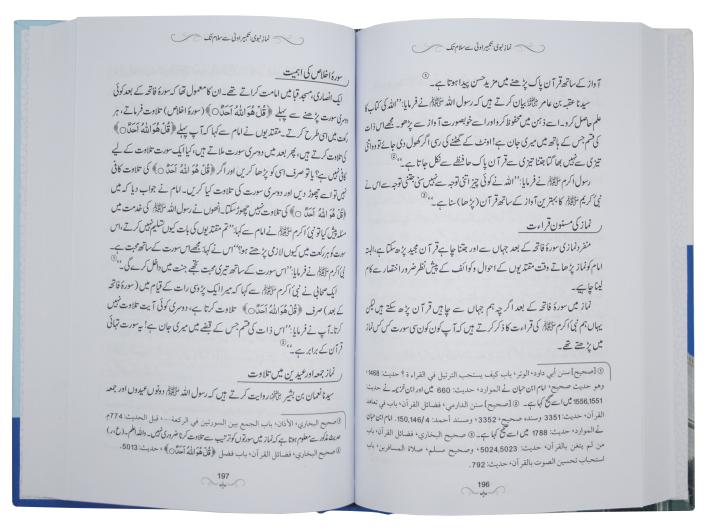 نماز نبوی: تکبیر اولیٰ سے سلام تک
آواز کے ساتھ قرآن پاک پڑھنے میں مزید حسن پیدا ہوتا ہے۔ ①
سیدنا عقبہ بن عامر رضی اللہ عنہ بیان کرتے ہیں کہ رسول اللہ ﷺ نے فرمایا: ”اللہ کی کتاب کا
علم حاصل کرو۔ اسے ذہن میں محفوظ کرو اور اسے خوبصورت آواز سے پڑھو۔ مجھے اس ذات
کی قسم جس کے ہاتھ میں میری جان ہے! اونٹ کے گھٹنے کی رسی اگر کھول دی جائے تو وہ اتنی
تیزی سے نہیں بھاگتا جتنا تیزی سے قرآن پاک حافظے سے نکل جاتا ہے۔“ ②
رسول اکرم ﷺ نے فرمایا: ”اللہ نے کوئی چیز اتنی توجہ سے نہیں سنی جتنی توجہ سے اس نے
نبی کریم ﷺ کا بہترین آواز کے ساتھ قرآن (پڑھنا) سنا ہے۔“ ③
نماز کی مسنون قراءت
منفرد نمازی سورۂ فاتحہ کے بعد جہاں سے اور جتنا چاہے قرآن مجید پڑھ سکتا ہے، البتہ
امام کو نماز پڑھاتے وقت مقتدیوں کے احوال و کوائف کے پیش نظر ضرور اختصار سے کام
لینا چاہیے۔
نماز میں سورۂ فاتحہ کے بعد اگرچہ ہم جہاں سے چاہیں قرآن پڑھ سکتے ہیں لیکن
یہاں ہم نبی اکرم ﷺ کی قراءت کا ذکر کرتے ہیں کہ آپ کون کون سی سورت کس کس نماز
میں پڑھتے تھے۔
① [صحیح] سنن أبي داود، الوتر، باب كيف يستحب الترتيل في القراءة؟ حديث: 1468،
وهو حديث صحيح، امام ابن حبان نے الموارد، حدیث: 660 میں اور ابن خزیمہ نے حدیث:
1556,1551 میں اسے صحیح کہا ہے۔ ② [صحیح] سنن الدارمي، فضائل القرآن، باب في تعاهد
القرآن، حديث: 3351 وسنده صحيح، 3352، ومسند أحمد: 150,146/4، امام ابن حبان
نے الموارد، حدیث: 1788 میں اسے صحیح کہا ہے۔ ③ صحيح البخاري، فضائل القرآن، باب
من لم يتغن بالقرآن، حديث: 5024,5023، وصحيح مسلم، صلاة المسافرين، باب
استحباب تحسين الصوت بالقرآن، حديث: 792.
196
نماز نبوی: تکبیر اولیٰ سے سلام تک
سورۂ اخلاص کی اہمیت
ایک انصاری، مسجد قبا میں امامت کراتے تھے۔ ان کا معمول تھا کہ سورۂ فاتحہ کے بعد کوئی
دوسری سورت پڑھنے سے پہلے ﴿قُلْ هُوَ اللّٰهُ اَحَدٌ ۝﴾ (سورۂ اخلاص) تلاوت فرماتے، ہر
رکعت میں اسی طرح کرتے۔ مقتدیوں نے امام سے کہا کہ آپ پہلے ﴿قُلْ هُوَ اللّٰهُ اَحَدٌ ۝﴾
کی تلاوت کرتے ہیں، پھر بعد میں دوسری سورت ملاتے ہیں، کیا ایک سورت تلاوت کے لیے
کافی نہیں ہے؟ یا تو صرف اسی کو پڑھا کریں اور اگر ﴿قُلْ هُوَ اللّٰهُ اَحَدٌ ۝﴾ کی تلاوت کافی
نہیں تو اسے چھوڑ دیں اور دوسری سورت کی تلاوت کیا کریں۔ امام نے جواب دیا کہ میں
﴿قُلْ هُوَ اللّٰهُ اَحَدٌ ۝﴾ کی تلاوت نہیں چھوڑ سکتا۔ انھوں نے رسول اللہ ﷺ کی خدمت میں
مسئلہ پیش کیا تو نبی اکرم ﷺ نے امام سے کہا: ”تم مقتدیوں کی بات کیوں تسلیم نہیں کرتے، اس
سورت کو ہر رکعت میں کیوں لازمی پڑھتے ہو؟“ اس نے کہا: مجھے اس سورت کے ساتھ محبت ہے۔
نبی اکرم ﷺ نے فرمایا: ”اس سورت کے ساتھ تیری محبت تجھے جنت میں داخل کرے گی۔“ ①
ایک صحابی نے نبی اکرم ﷺ سے کہا کہ میرا ایک پڑوسی رات کے قیام میں (سورۂ فاتحہ
کے بعد) صرف ﴿قُلْ هُوَ اللّٰهُ اَحَدٌ ۝﴾ تلاوت کرتا ہے، دوسری کوئی آیت تلاوت نہیں
کرتا۔ آپ نے فرمایا: ”اس ذات کی قسم جس کے قبضے میں میری جان ہے! یہ سورت تہائی
قرآن کے برابر ہے۔“ ②
نماز جمعہ اور عیدین میں تلاوت
سیدنا نعمان بن بشیر رضی اللہ عنہ روایت کرتے ہیں کہ رسول اللہ ﷺ دونوں عیدوں اور جمعہ
① صحيح البخاري، الأذان، باب الجمع بين السورتين في الركعة...، قبل الحديث: 774م
حدیث مذکور سے معلوم ہوتا ہے کہ نماز میں سورتوں کو ترتیب سے تلاوت کرنا ضروری نہیں۔ واللہ اعلم۔ (ع، ر)
② صحيح البخاري، فضائل القرآن، باب فضل ﴿قُلْ هُوَ اللّٰهُ اَحَدٌ ۝﴾، حديث: 5013.
197